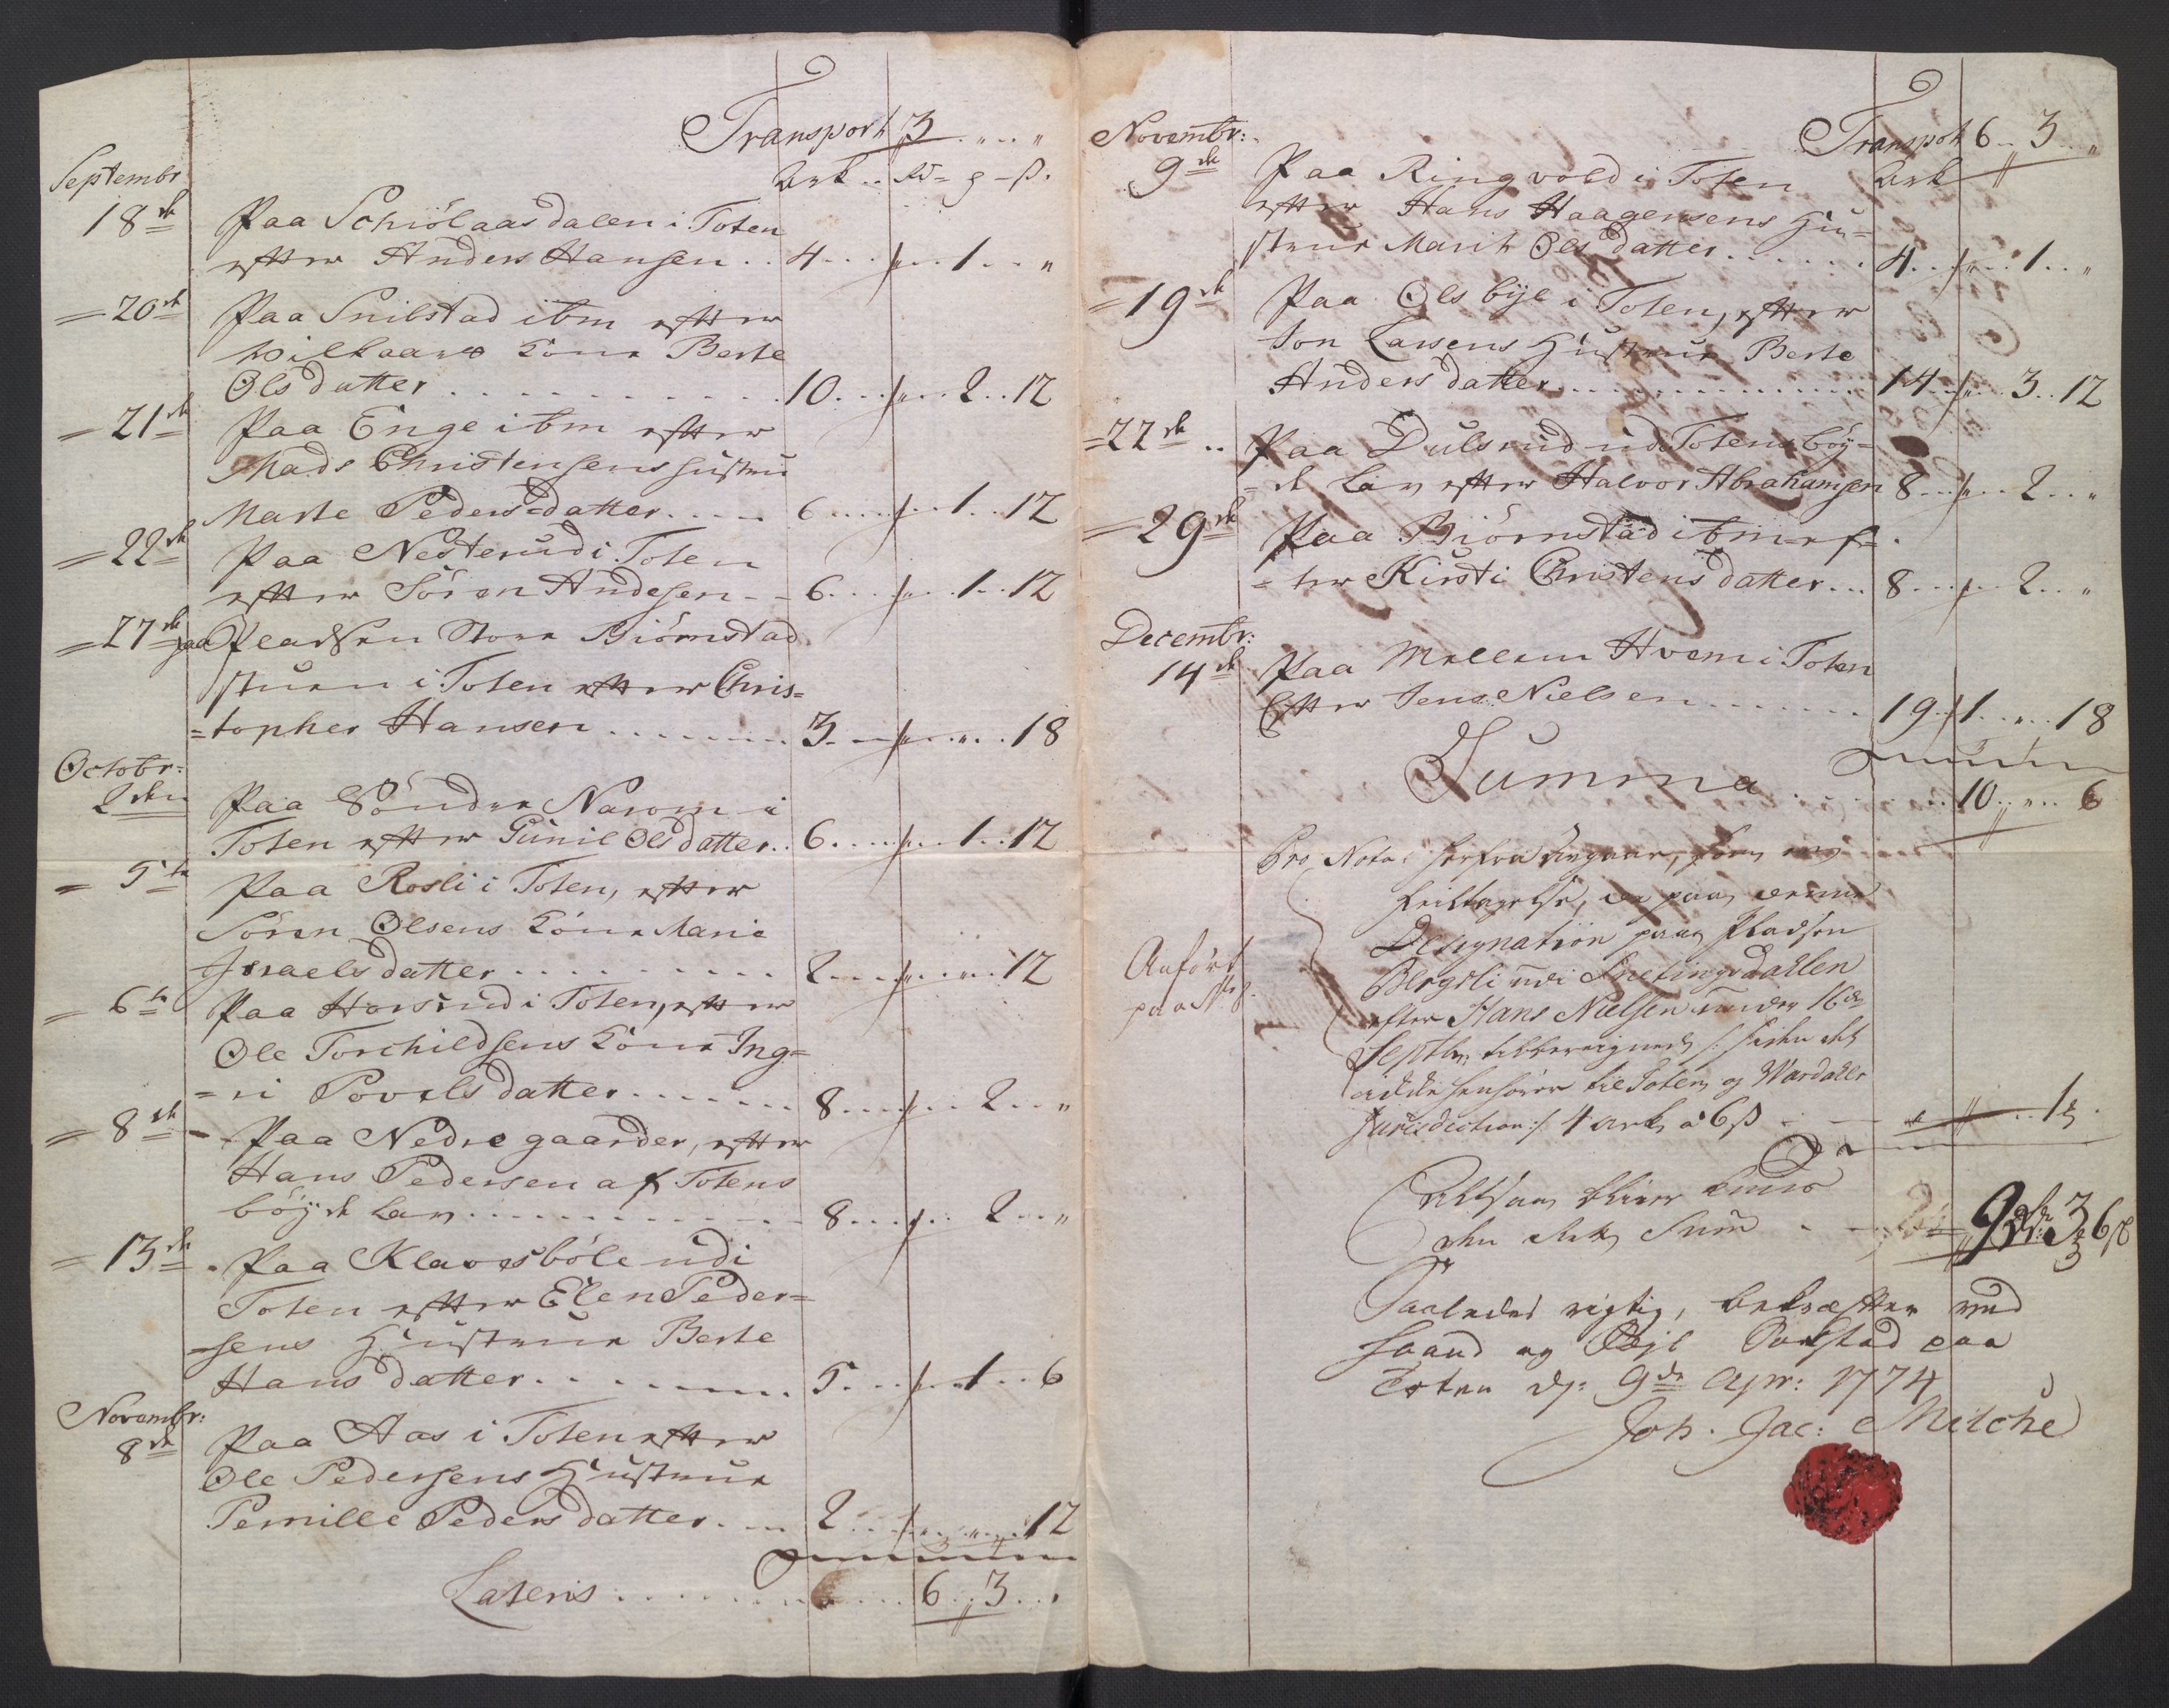 Transport 3 . „ . . „
Septembr
Ark .. Rd - ꝫ - ß.
18de Paa Schiölaasdalen i Toten
efter Anders Hansen . . 4 . . . „ . . 1 . . „
= 20de Paa Snilstad ibm efter
Wilkaars Kone Berte
Olsdatter . . . . 10 . . . „ . . 2 . . 12
= 21de Paa Enge ibm efter
Mads Christensens Hustru
Marte Pedersdatter . . . . 6 . . . „ . . 1 . . 12
= 22de Paa Nesterud i Toten
efter Sören Andesen - - 6 . . . „ . . 1 . . 12
= 27de paa Pladsen Store Biörnstad
stuen i Toten efter Chris=
=topher Hansen . . . . 3 . . . „ . . „ . . 18
Octobr:
2den Paa Söndre Narom i
Toten efter Gunil Olsdatter . . 6 . . . „ . . 1 . . 12
= 5te Paa Rosli i Toten, efter
Sören Olsens Kone Marie
Israelsdatter . . . . 2 . . . „ . . „ . . 12
= 6te Paa Horsrud i Toten, efter
Ole Torchildsens Kone Ing=
=ri Povelsdatter . . . . 8 . . . „ . . 2 . . „
= 8de - Paa Nedre gaarder, efter
Hans Pedersen af Totens
böyde Lav . . . . 8 . . . „ . . 2 . . „
= 13de . Paa Klavesböle udi
Toten efter Elen Peder=
=sens Hustrue Berte
Hansdatter . . . . 5 . . . „ . . 1 . . 6
Novembr:
8de Paa Aas i Toten efter
Ole Pedersens Hustrue
Pernille Pedersdatter . . . 2 . . . „ . . „ . . 12
Lateris . . . . 6 . . 3 . . „
Novembr:
Transpot 6 . . 3 . . „
9de Paa Ringvold i Toten Ark
efter Hans Haagensens Hu=
strue Marit Olsdatter . . . . 4 . . „ . . 1 . . „
= 19de Paa Olsbye i Toten, efter
Jon Larsens Hustrue Berte
Andersdatter . . . . 14 . . „ . . 3 . . 12
= 22de . . Paa Dulsrud udi Totens böy=
=de Lav efter Halvor Abrahamsen 8 . . „ . . 2 . . „
= 29de Paa Biörnstad ibm ef=
=ter Kirsti Christensdatter . . . 8 . . . „ . . 2 . . „
Decembr:
14de Paa Mellem Hvem i Toten
Efter Jens Nielsen . . . . 19 . . 1 . . „ . . 18
Summa . . . . 10 . . „ . . 6
Pro Nota: herfra afgaar, som en
feiltagelse, da paa denne
Designation paa Pladsen
Bergsli udi Snetingsdallen
Anfört
paa No 8.
efter Hans Nielsen under 16de
Septbr, tilberegned /: siden det
icke henhörer til Toten og Wardalls
Jurisdiction :/ 4 ark a 6 ß - - „ . . 1 ꝫ .
Altsaa bliver Kuns
den rette Sum - - 9 rdr: 3 ꝫ 6 ß
Saaledes rigtig, bekræfter med
Haand og Segl Sokstad paa
Toten d: 9de Apr: 1774
Joh. Jac: Mitche